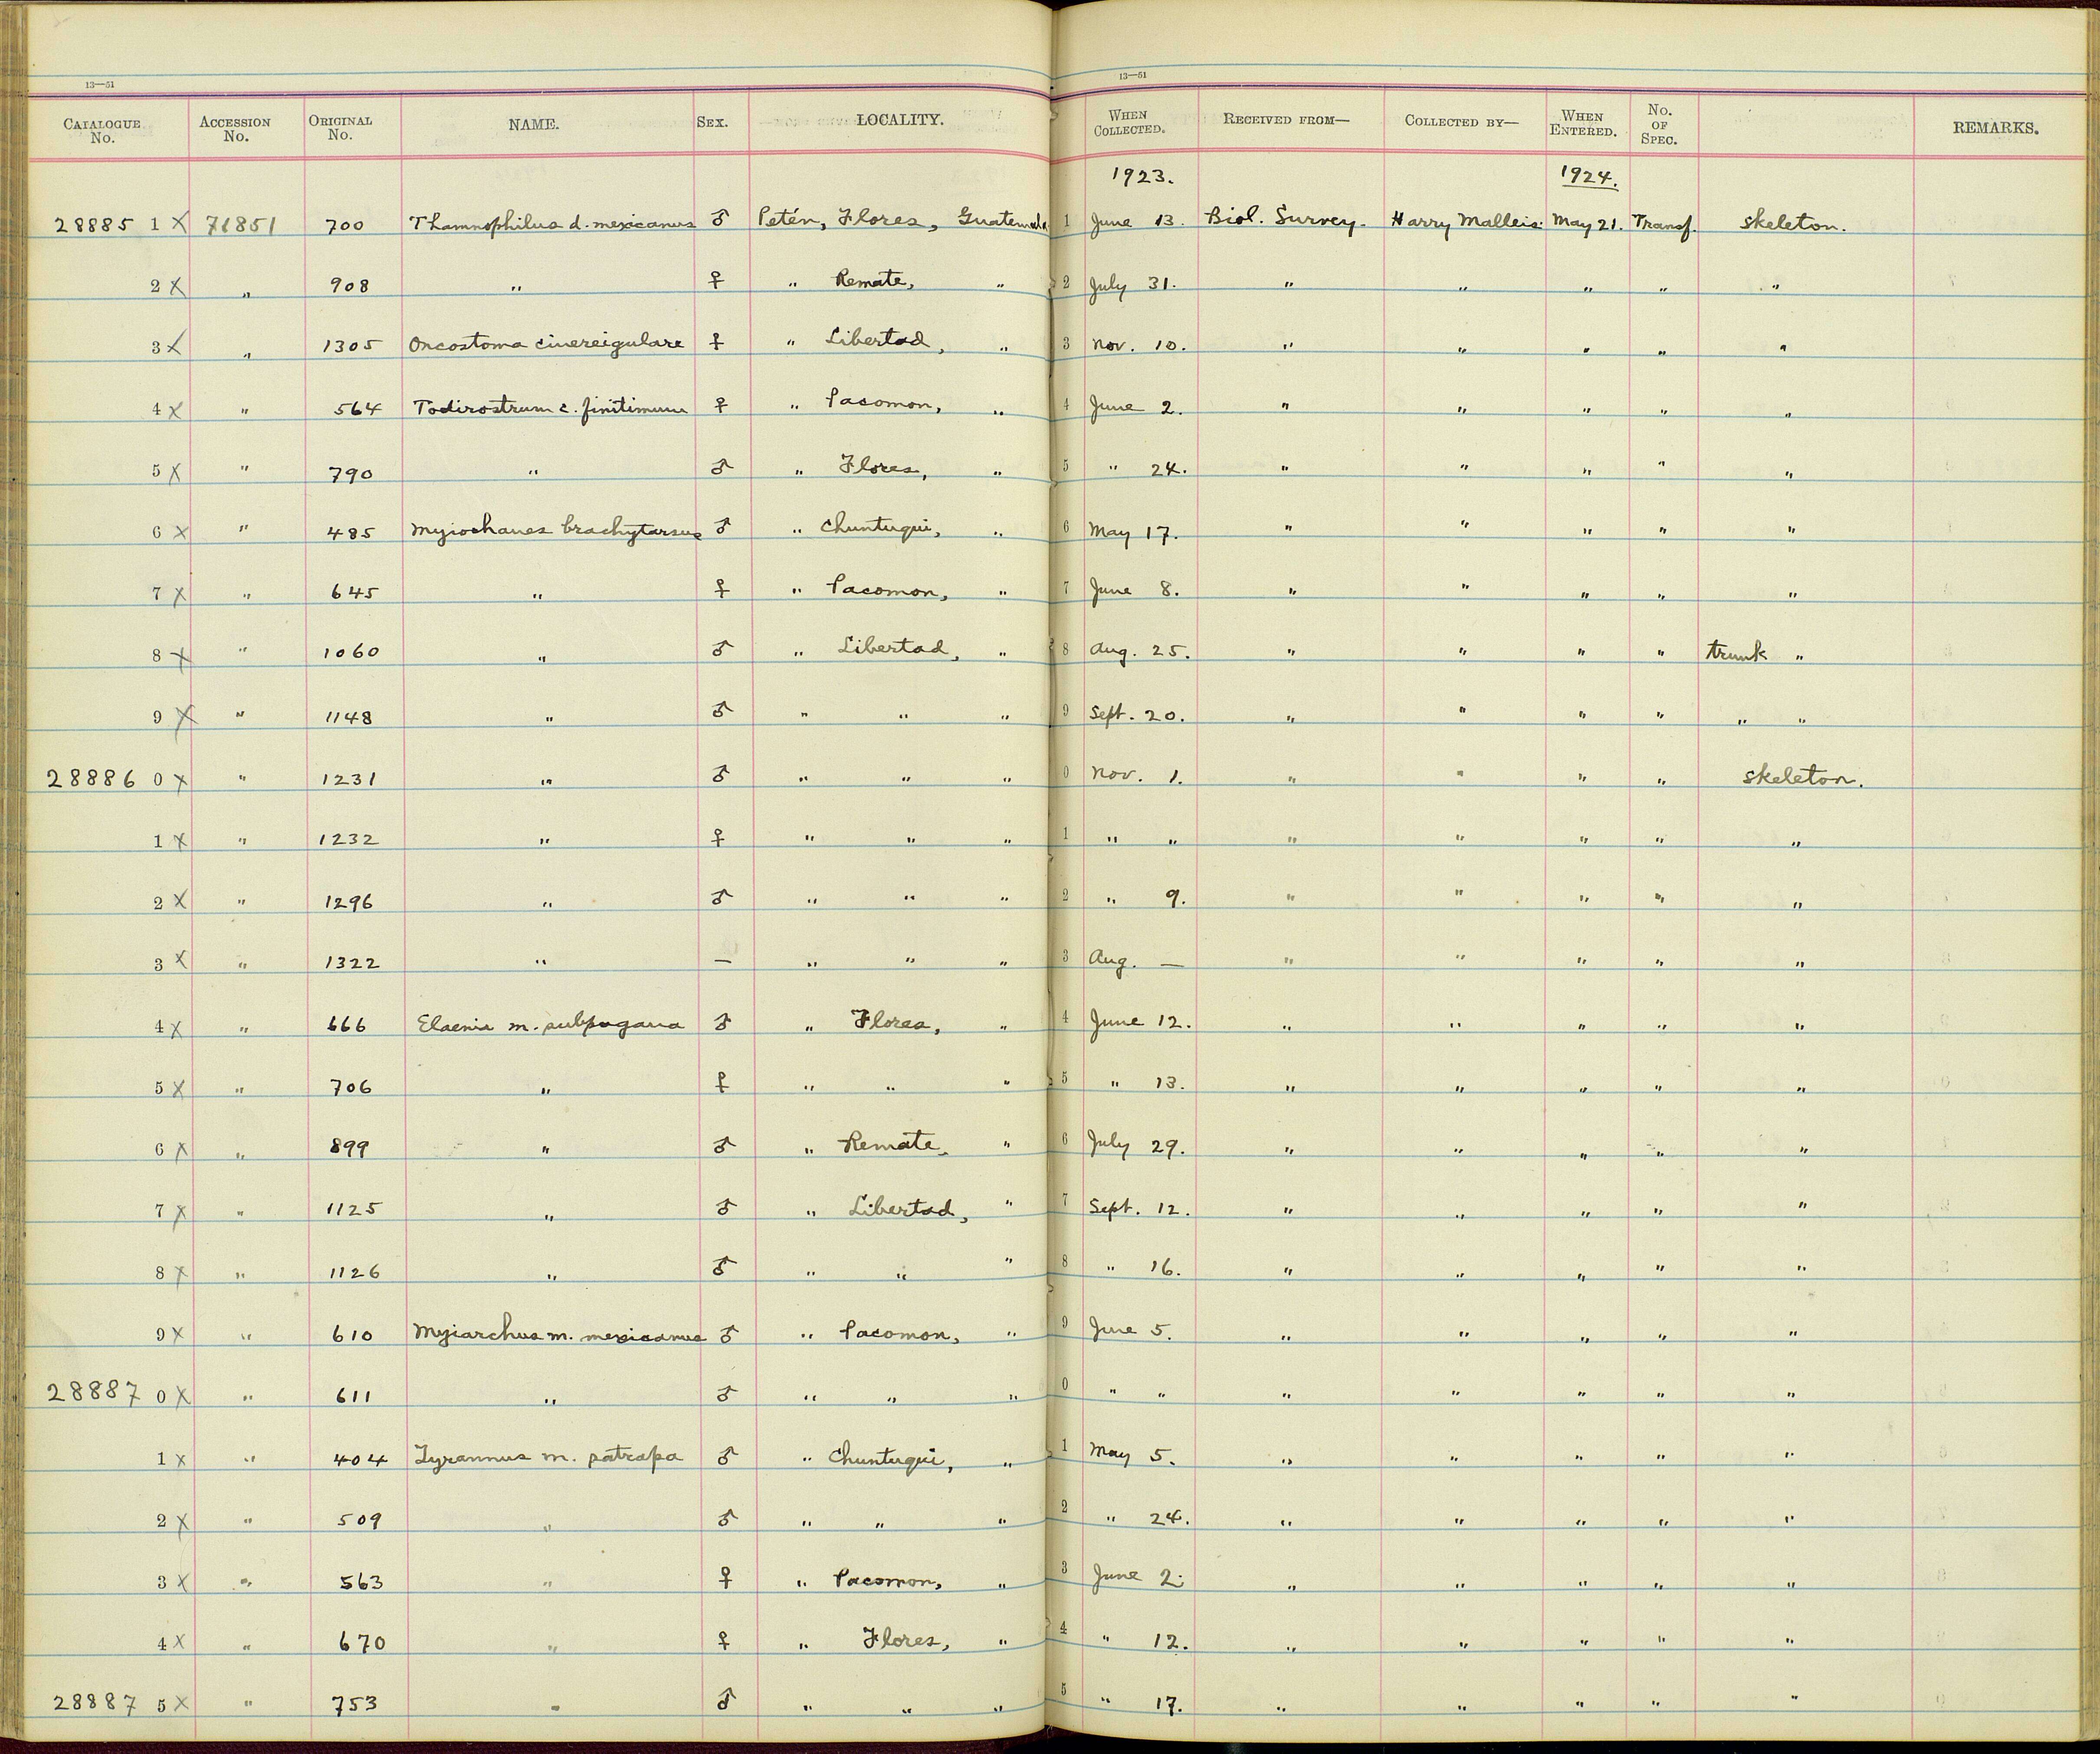 13—51 13—51
CATALOGUE No. ACCESSION No. ORIGINAL No. NAME. SEX. LOCALITY. WHEN COLLECTED. RECEIVED FROM— COLLECTED BY— WHEN ENTERED. No. OF SPEC. REMARKS.
1923. 1924.
28885 1 X 71851 700 Thamnophilus d. mexicanus ♂ Petén, Flores, Guatemala 1 June 13. Biol. Survey. Harry Malleis May 21. Transf. skeleton.
2 X " 908 " ♀ " Remate, " 2 July 31. " " " " "
3 X " 1305 Oncostoma cinereigulare ♀ " Libertad, " 3 Nov. 10. " " " " "
4 X " 564 Todirostrum c. finitimum ♀ " Pacomon, " 4 June 2. " " " " "
5 X " 790 " ♂ " Flores, " 5 " 24. " " " " "
6 X " 485 Myiochanes brachytarsus ♂ " Chuntuqui, " 6 May 17. " " " " "
7 X " 645 " ♀ " Pacomon, " 7 June 8. " " " " "
8 X " 1060 " ♂ " Libertad, " 8 Aug. 25. " " " " trunk "
9 X " 1148 " ♂ " " " 9 Sept. 20. " " " " " "
28886 0 X " 1231 " ♂ " " " 0 Nov. 1. " " " " skeleton.
1 X " 1232 " ♀ " " " 1 " " " " " " "
2 X " 1296 " ♂ " " " 2 " 9. " " " " "
3 X " 1322 " — " " " 3 Aug. — " " " " "
4 X " 666 Elaenia m. subpagana ♂ " Flores, " 4 June 12. " " " " "
5 X " 706 " ♀ " " " 5 " 13. " " " " "
6 X " 899 " ♂ " Remate, " 6 July 29. " " " " "
7 X " 1125 " ♂ " Libertad, " 7 Sept. 12. " " " " "
8 X " 1126 " ♂ " " " 8 " 16. " " " " "
9 X " 610 Myiarchus m. mexicanus ♂ " Pacomon, " 9 June 5. " " " " "
28887 0 X " 611 " ♂ " " " 0 " " " " " " "
1 X " 404 Tyrannus m. satrapa ♂ " Chuntuqui, " 1 May 5. " " " " "
2 X " 509 " ♂ " " " 2 " 24. " " " " "
3 X " 563 " ♀ " Pacomon, " 3 June 2. " " " " "
4 X " 670 " ♀ " Flores, " 4 " 12. " " " " "
28887 5 X " 753 " ♂ " " " 5 " 17. " " " " "